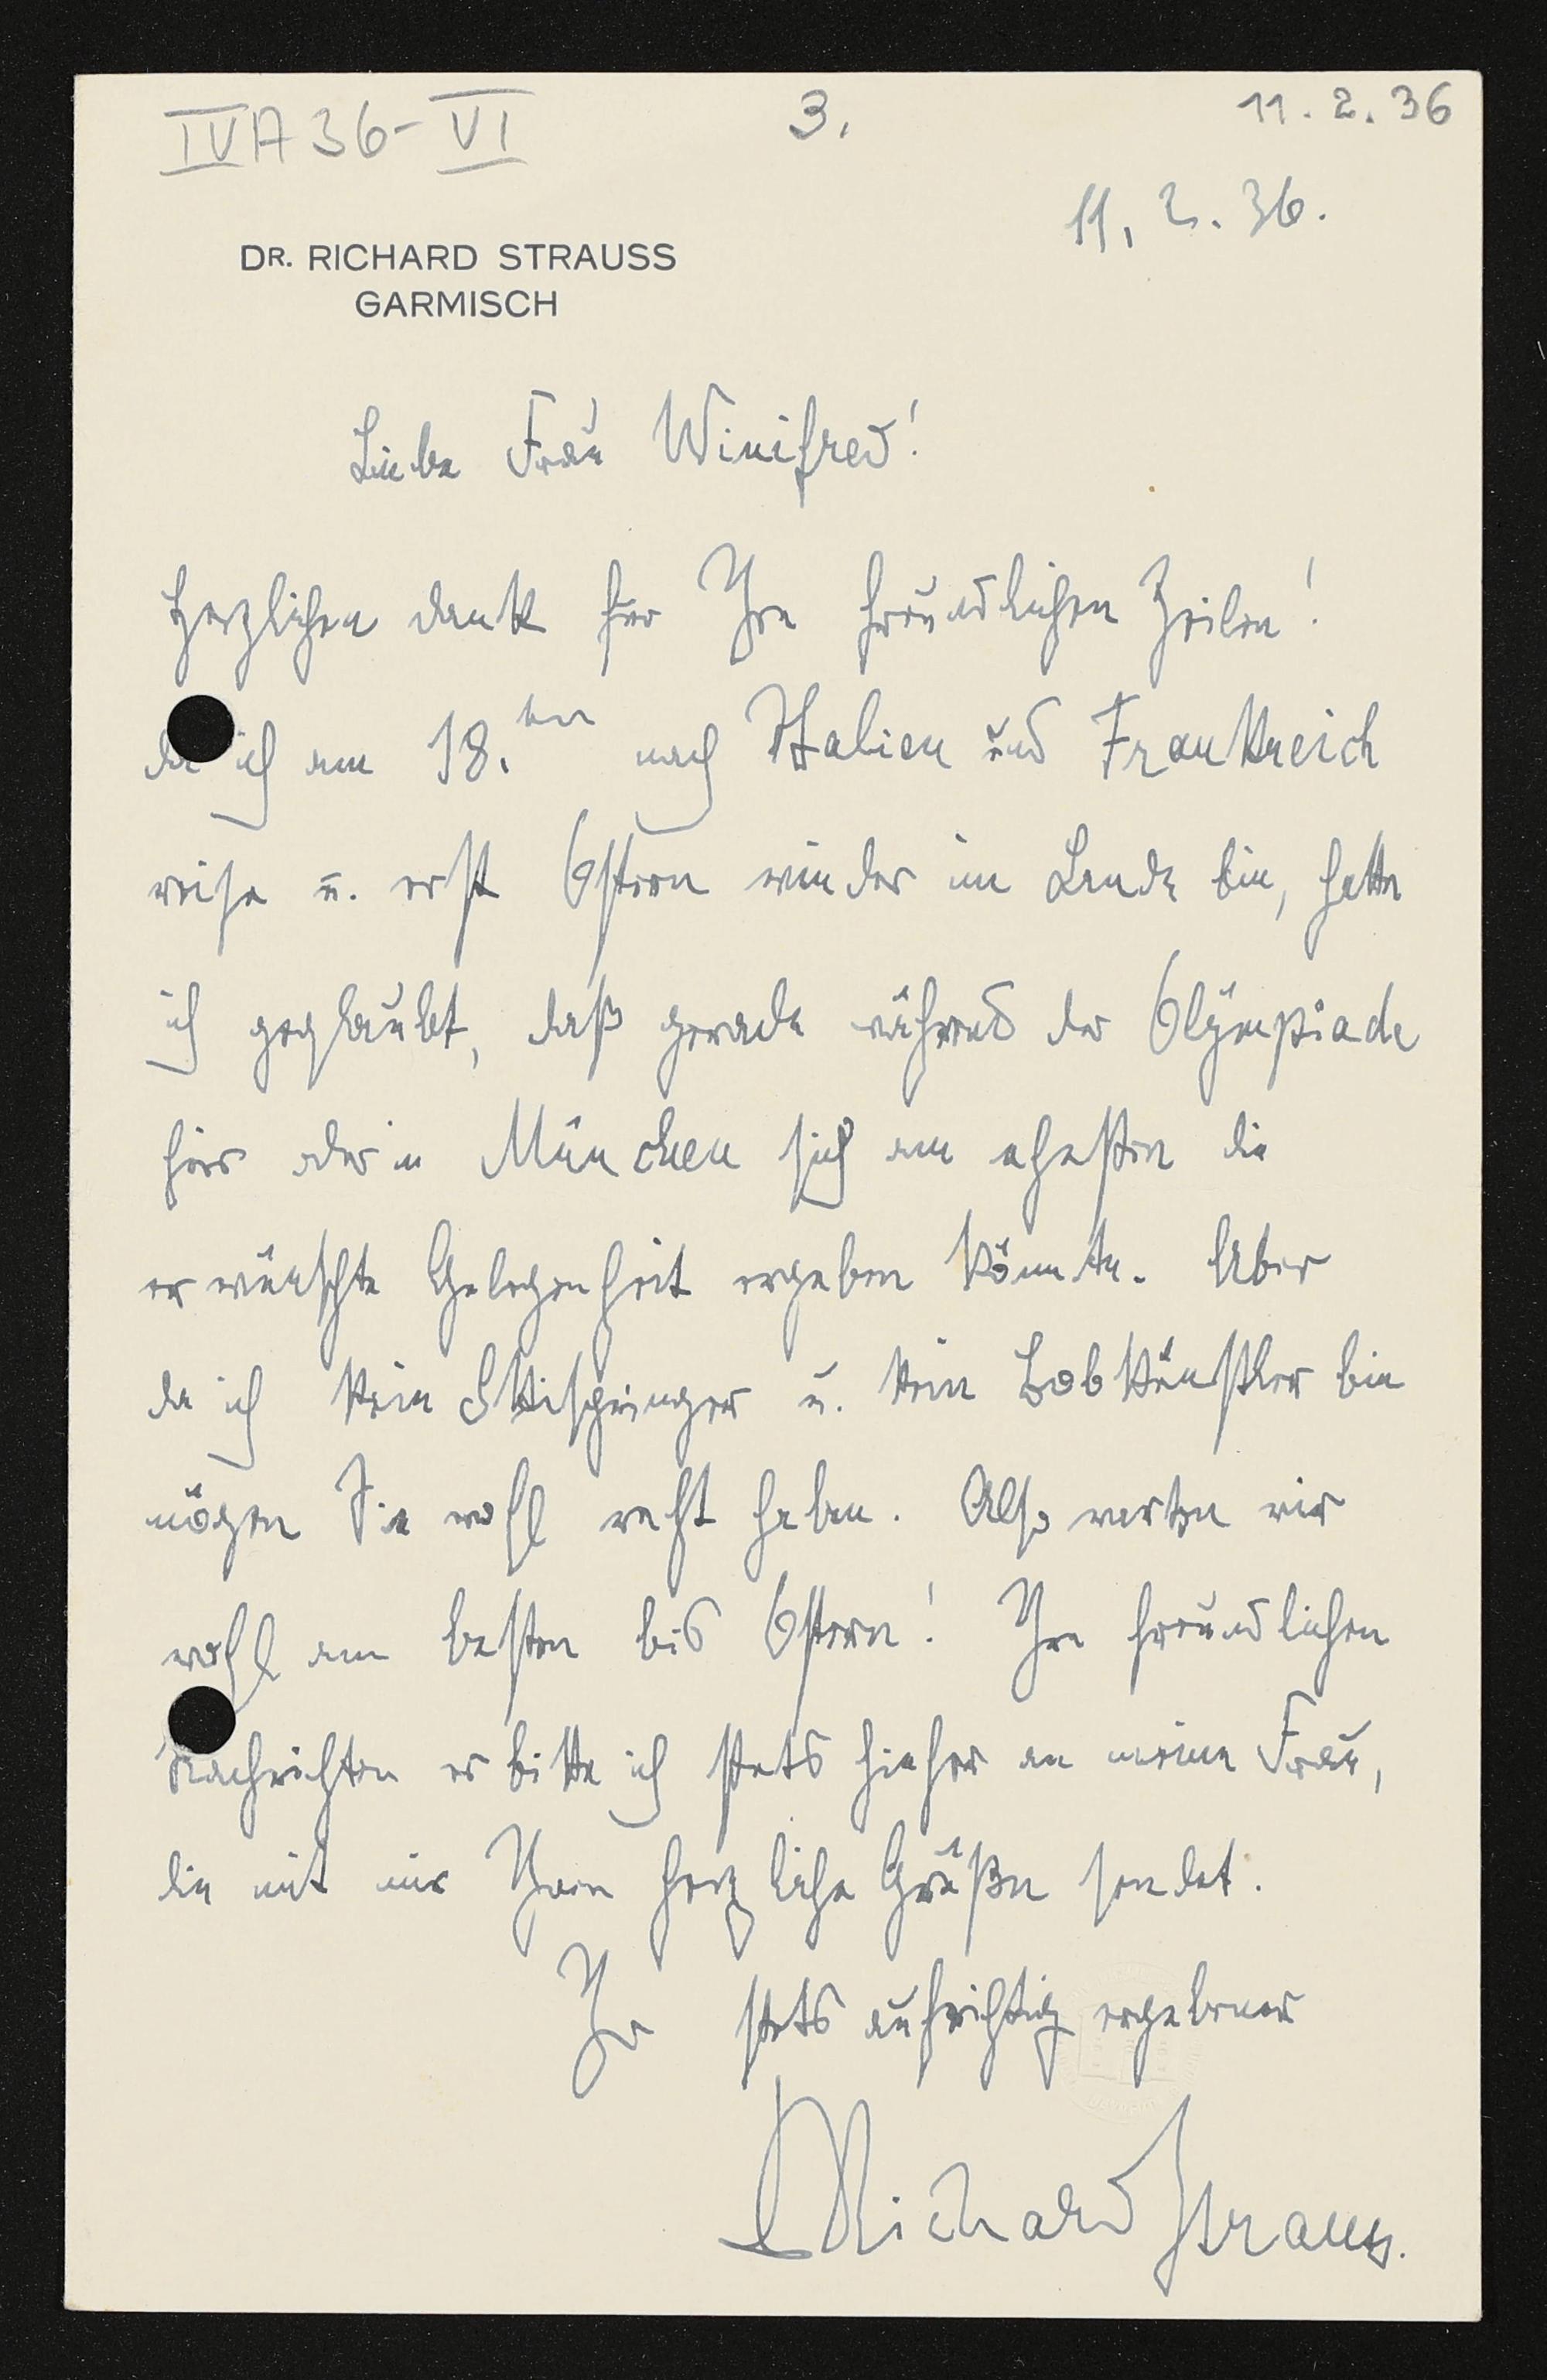 IVA 36-VI
3.
11. 2. 36
11. 2. 36.
DR. RICHARD STRAUSS
GARMISCH
Liebe Frau Winifred!
Herzlichen Dank für Ihre freundlichen Zeilen!
da ich am 18.ten nach Italien und Frankreich
reise u. erst Ostern wieder im Lande bin, hatte
ich geglaubt, daß gerade während der Olympiade
hier oder in München sich am ehesten die
erwünschte Gelegenheit ergeben könnte. Aber
da ich kein Skispringer u. kein Bobkünstler bin
mögen Sie wohl recht haben. Also warten wir
wohl am besten bis Ostern! Ihre freundlichen
Nachrichten erbitte ich stets hieher an meine Frau,
die mit mir Ihnen herzliche Grüße sendet.
Ihr stets aufrichtig ergebener
Richard Strauss.